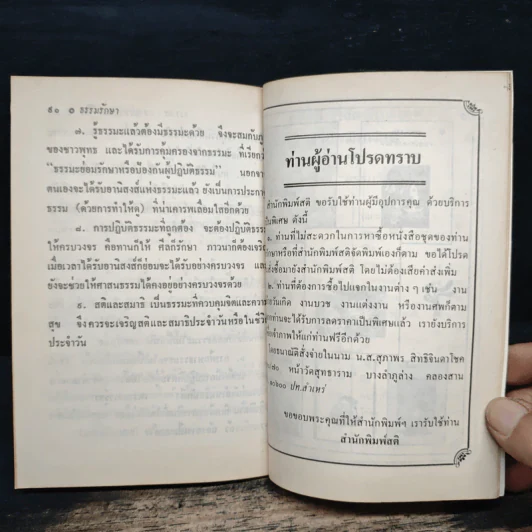 ๕๐ ๏ ธรรมรักษา
๗. รู้ธรรมะแล้วต้องมีธรรมะด้วย จึงจะสมกับภู
ของชาวพุทธ และได้รับการคุ้มครองจากธรรมะ ที่เรียกว่
"ธรรมะย่อมรักษาหรือป้องกันผู้ปฏิบัติธรรม" นอกจา
ตนเองจะได้รับอานิสงส์แห่งธรรมะแล้ว ยังเป็นการประกา
ธรรม (ด้วยการทำให้ดู) ที่น่าเคารพเลื่อมใสอีกด้วย
๘. การปฏิบัติธรรมะที่ถูกต้อง จะต้องปฏิบัติธรร
ให้ครบวงจร คือทานก็ให้ ศีลก็รักษา ภาวนาก็ต้องเจร
เมื่อเวลาได้รับอานิสงส์ก็ย่อมจะได้รับอย่างครบวงจร แล
ยังจะช่วยให้ศาสนธรรมได้คงอยู่อย่างครบวงจรด้วย
๙. สติและสมาธิ เป็นธรรมะที่ควบคุมจิตและความ
สุข จึงควรจะเจริญสติและสมาธิประจำวันหรือในชีวิ
ประจำวัน
ท่านผู้อ่านโปรดทราบ
สำนักพิมพ์สติ ขอรับใช้ท่านผู้มีอุปการคุณ ด้วยบริการ
เป็นพิเศษ ดังนี้
๑. ท่านที่ไม่สะดวกในการหาซื้อหนังสือชุดของท่าน
รักษาหรือที่สำนักพิมพ์สติจัดพิมพ์เองก็ตาม ขอได้โปรด
สั่งซื้อมายังสำนักพิมพ์สติ โดยไม่ต้องเสียค่าส่งเพิ่ม
๒. ท่านที่ต้องการซื้อไปแจกในงานต่าง ๆ เช่น งาน
วันเกิด งานบวช งานแต่งงาน หรืองานศพก็ตาม
ท่านจะได้รับการลดราคาเป็นพิเศษแล้ว เรายังบริการ
พิมพ์คำภาพให้แก่ท่านฟรีอีกด้วย
โดยธนาณัติสั่งจ่ายในนาม น.ส.สุภาพร สิทธิจินดาโชค
หน้าวัดสุทธาราม บางลำภูล่าง คลองสาน
๑๐๖๐๐ ปท.สำเหร่
ขอขอบพระคุณที่ให้สำนักพิมพ์ฯ เรารับใช้ท่าน
สำนักพิมพ์สติ